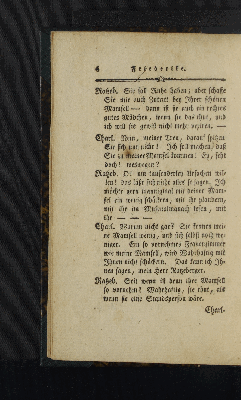 6 Fesedville.
Ratzeb. Sie soll Ruhe haben; aber schaffe
Sie mir auch Zutritt bey Ihrer schönen
Mamsell — dann ist sie auch ein rechtes
gutes Mädchen, wenn sie das thut, und
ich will sie gewiß nicht mehr vexiren. —
Charl. Nein, meiner Treu, darauf spitzen
Sie sich nur nicht! Ich soll machen, daß
Sie zu meiner Mamsell kommen! Ey, seht
doch! weswegen?
Ratzeb. O! um tausenderley Ursachen wil-
len! das läßt sich nicht alles so sagen. Ich
möchte gern manchmal mit deiner Mam-
sell ein wenig schäkern, mit ihr plaudern,
mit ihr im Musenalmanach lesen, mit
ihr — — —
Charl. Warum nicht gar? Sie kennen mei-
ne Mamsell wenig, und sich selbst noch we-
niger. Ein so vornehmes Frauenzimmer
wie meine Mamsell, wird Wahrhaftig mit
Ihnen nicht schäkern. Das kann ich Ih-
nen sagen, mein Herr Ratzeberger.
Ratzeb. Seit wenn ist denn Ihre Mamsell
so vornehm? Wahrhaftig, sie thut, als
wenn sie eine Standsperson wäre.
Charl-